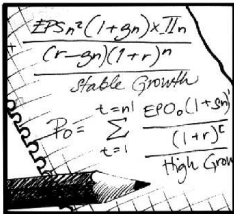 EPSn²(1+gn)×Πn
(r-gn)(1+r)ⁿ
Stable Growth
t=n1
EPO₀(1+gn)'
P₀= Σ
(1+r)ᶜ
t=1
High Grow